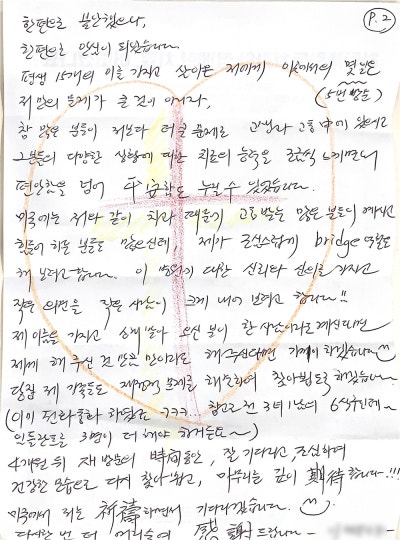 P.2
한편으로 불안했으나,
한편으로 안심이 되었습니다.
평생 15개의 이를 가지고 살아온 저에게 이곳에서의 몇일은
(5번 방문)
저만의 문제가 큰 것이 아니라,
참 많은 분들이 저보다 더 큰 문제로 고생과 고통中에 있었고
그분들의 다양한 상황에 대한 치료의 능력을 조금씩
편안함을 넘어 平安함도 누릴 수 있었습니다.
미국에는 저와 같이 치과 때문에 고통받는 많은 분들이 계시고
힘들어 하는 분들도 많으신데, 제가 조심스럽게 bridge 역할도
해 보려고 합니다. 이 병원에 대한 신뢰와 신의를 가지고
작은 의견을 작은 사람이 크게 내어 보려고 합니다!!
제 이름을 가지고 상담 받아 오신 분이 한 사람이라도 계신다면
제게 해 주신 것 만큼 만이라도 해 주신다면 기쁘겠습니다
당장 제 가족들도 재정적 문제를 해소하여 찾아뵙도록 하겠습니다.
(이미 전화통화 하였죠 ㅋㅋㅋ... 참고로 전 3녀 1남에 6식구인데~
인플란트를 3명이 더 해야 하거든요~)
4개월 뒤 재 방문의 時間동안, 잘 기다리고 조심하여
건강한 모습으로 다시 찾아뵙고, 마무리를 깊이 期待합니다!!!
미국에서 저는 祈禱하면서 기다리겠습니다.
다시한 번 더 머리숙여 感謝드립니다~